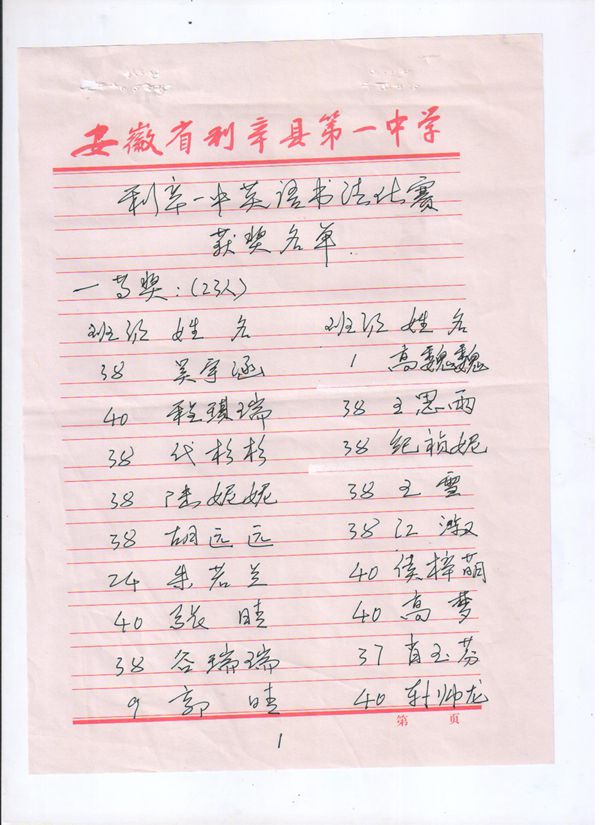 安徽省利辛县第一中学
利辛一中英语书法比赛
获奖名单
一等奖：(23人)
班级 姓名 班级 姓名
38 吴宇涵 1 高魏魏
40 程琪瑞 38 王思雨
38 代杉杉 38 纪祯妮
38 陆妮妮 38 王雪
38 胡远远 38 江淑
24 朱若兰 40 侯梓萌
40 张晴 40 高梦
38 谷瑞瑞 37 肖玉芬
9 郭晴 40 帅龙
第 页
1